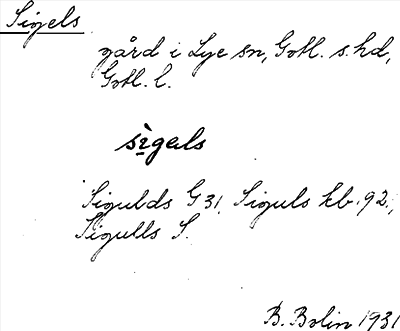 Sigels
gård i Lye sn, Gotl. s. hd,
Gotl. l.
sìgals
Sigulds G 31, Siguls kb. 92.,
Sigulls S.
B. Bolin 1931